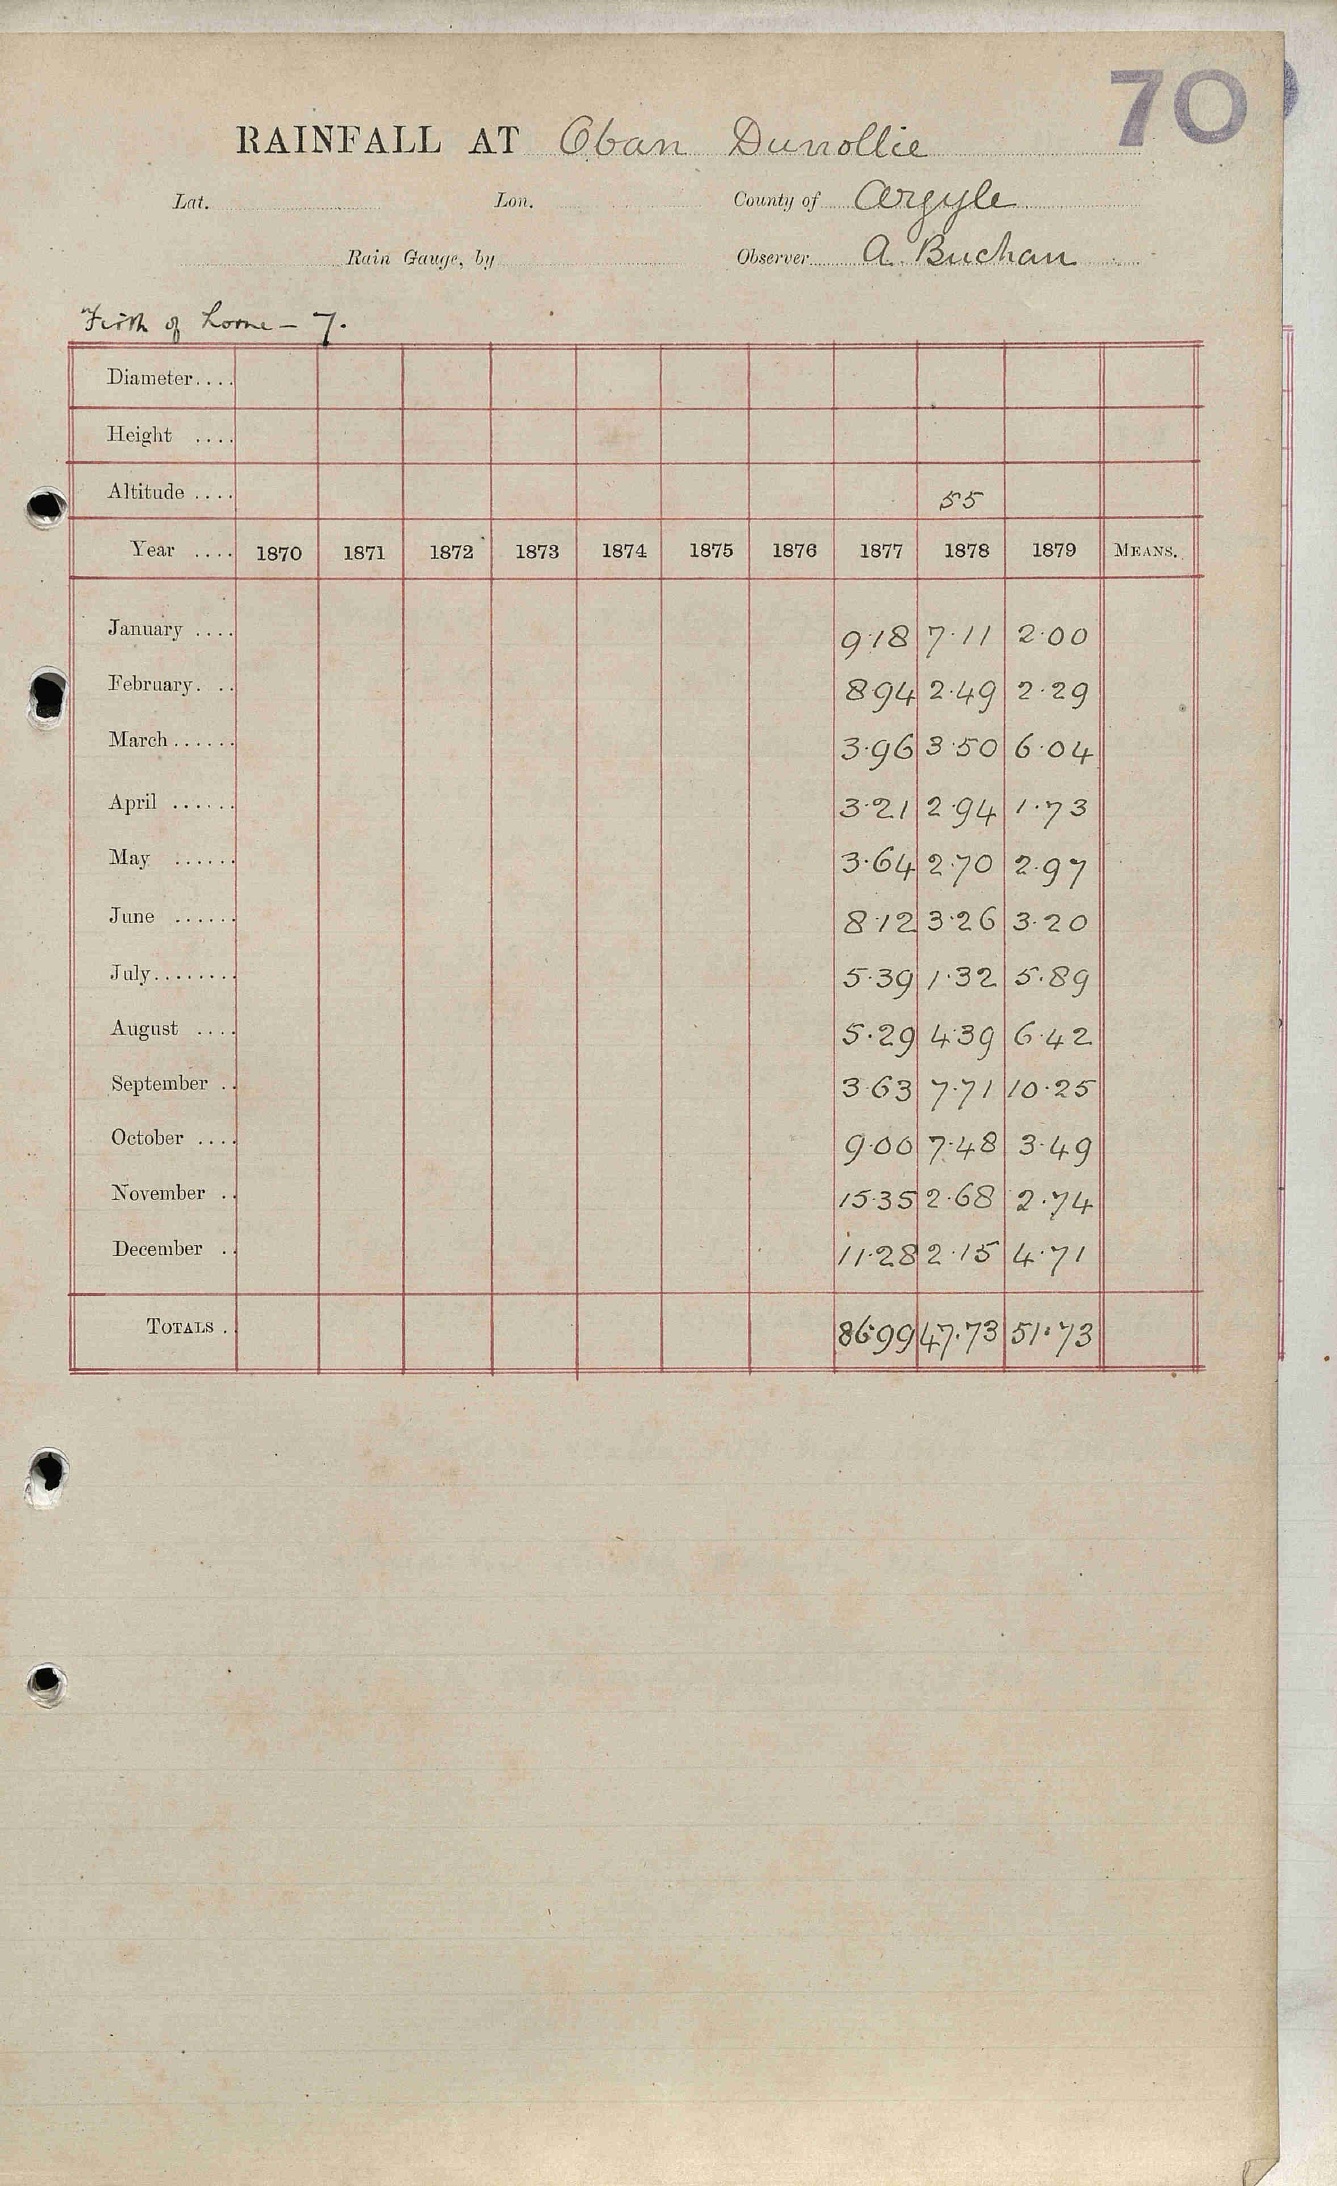 70
RAINFALL AT Oban Dunollie
Lat. Lon. County of Argyle
Rain Gauge, by Observer A. Buchan
Firth of Lorne - 7.
Diameter....
Height ....
Altitude .... 55
Year .... 1870 1871 1872 1873 1874 1875 1876 1877 1878 1879 MEANS.
January .... 9.18 7.11 2.00
February. .. 8 94 2.49 2.29
March...... 3.96 3.50 6.04
April ...... 3.21 2.94 1.73
May ...... 3.64 2.70 2.97
June ...... 8.12 3.26 3.20
July........ 5.39 1.32 5.89
August .... 5.29 4.39 6.42
September .. 3.63 7.71 10.25
October .... 9.00 7.48 3.49
November .. 15.35 2.68 2.74
December .. 11.28 2.15 4.71
TOTALS . 86.99 47.73 51.73